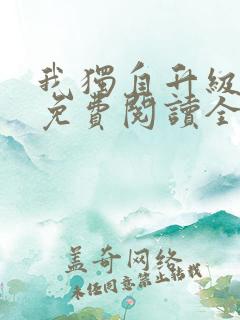 我獨自升級
免費閱讀全
蓋奇网络
未经同意禁止转载